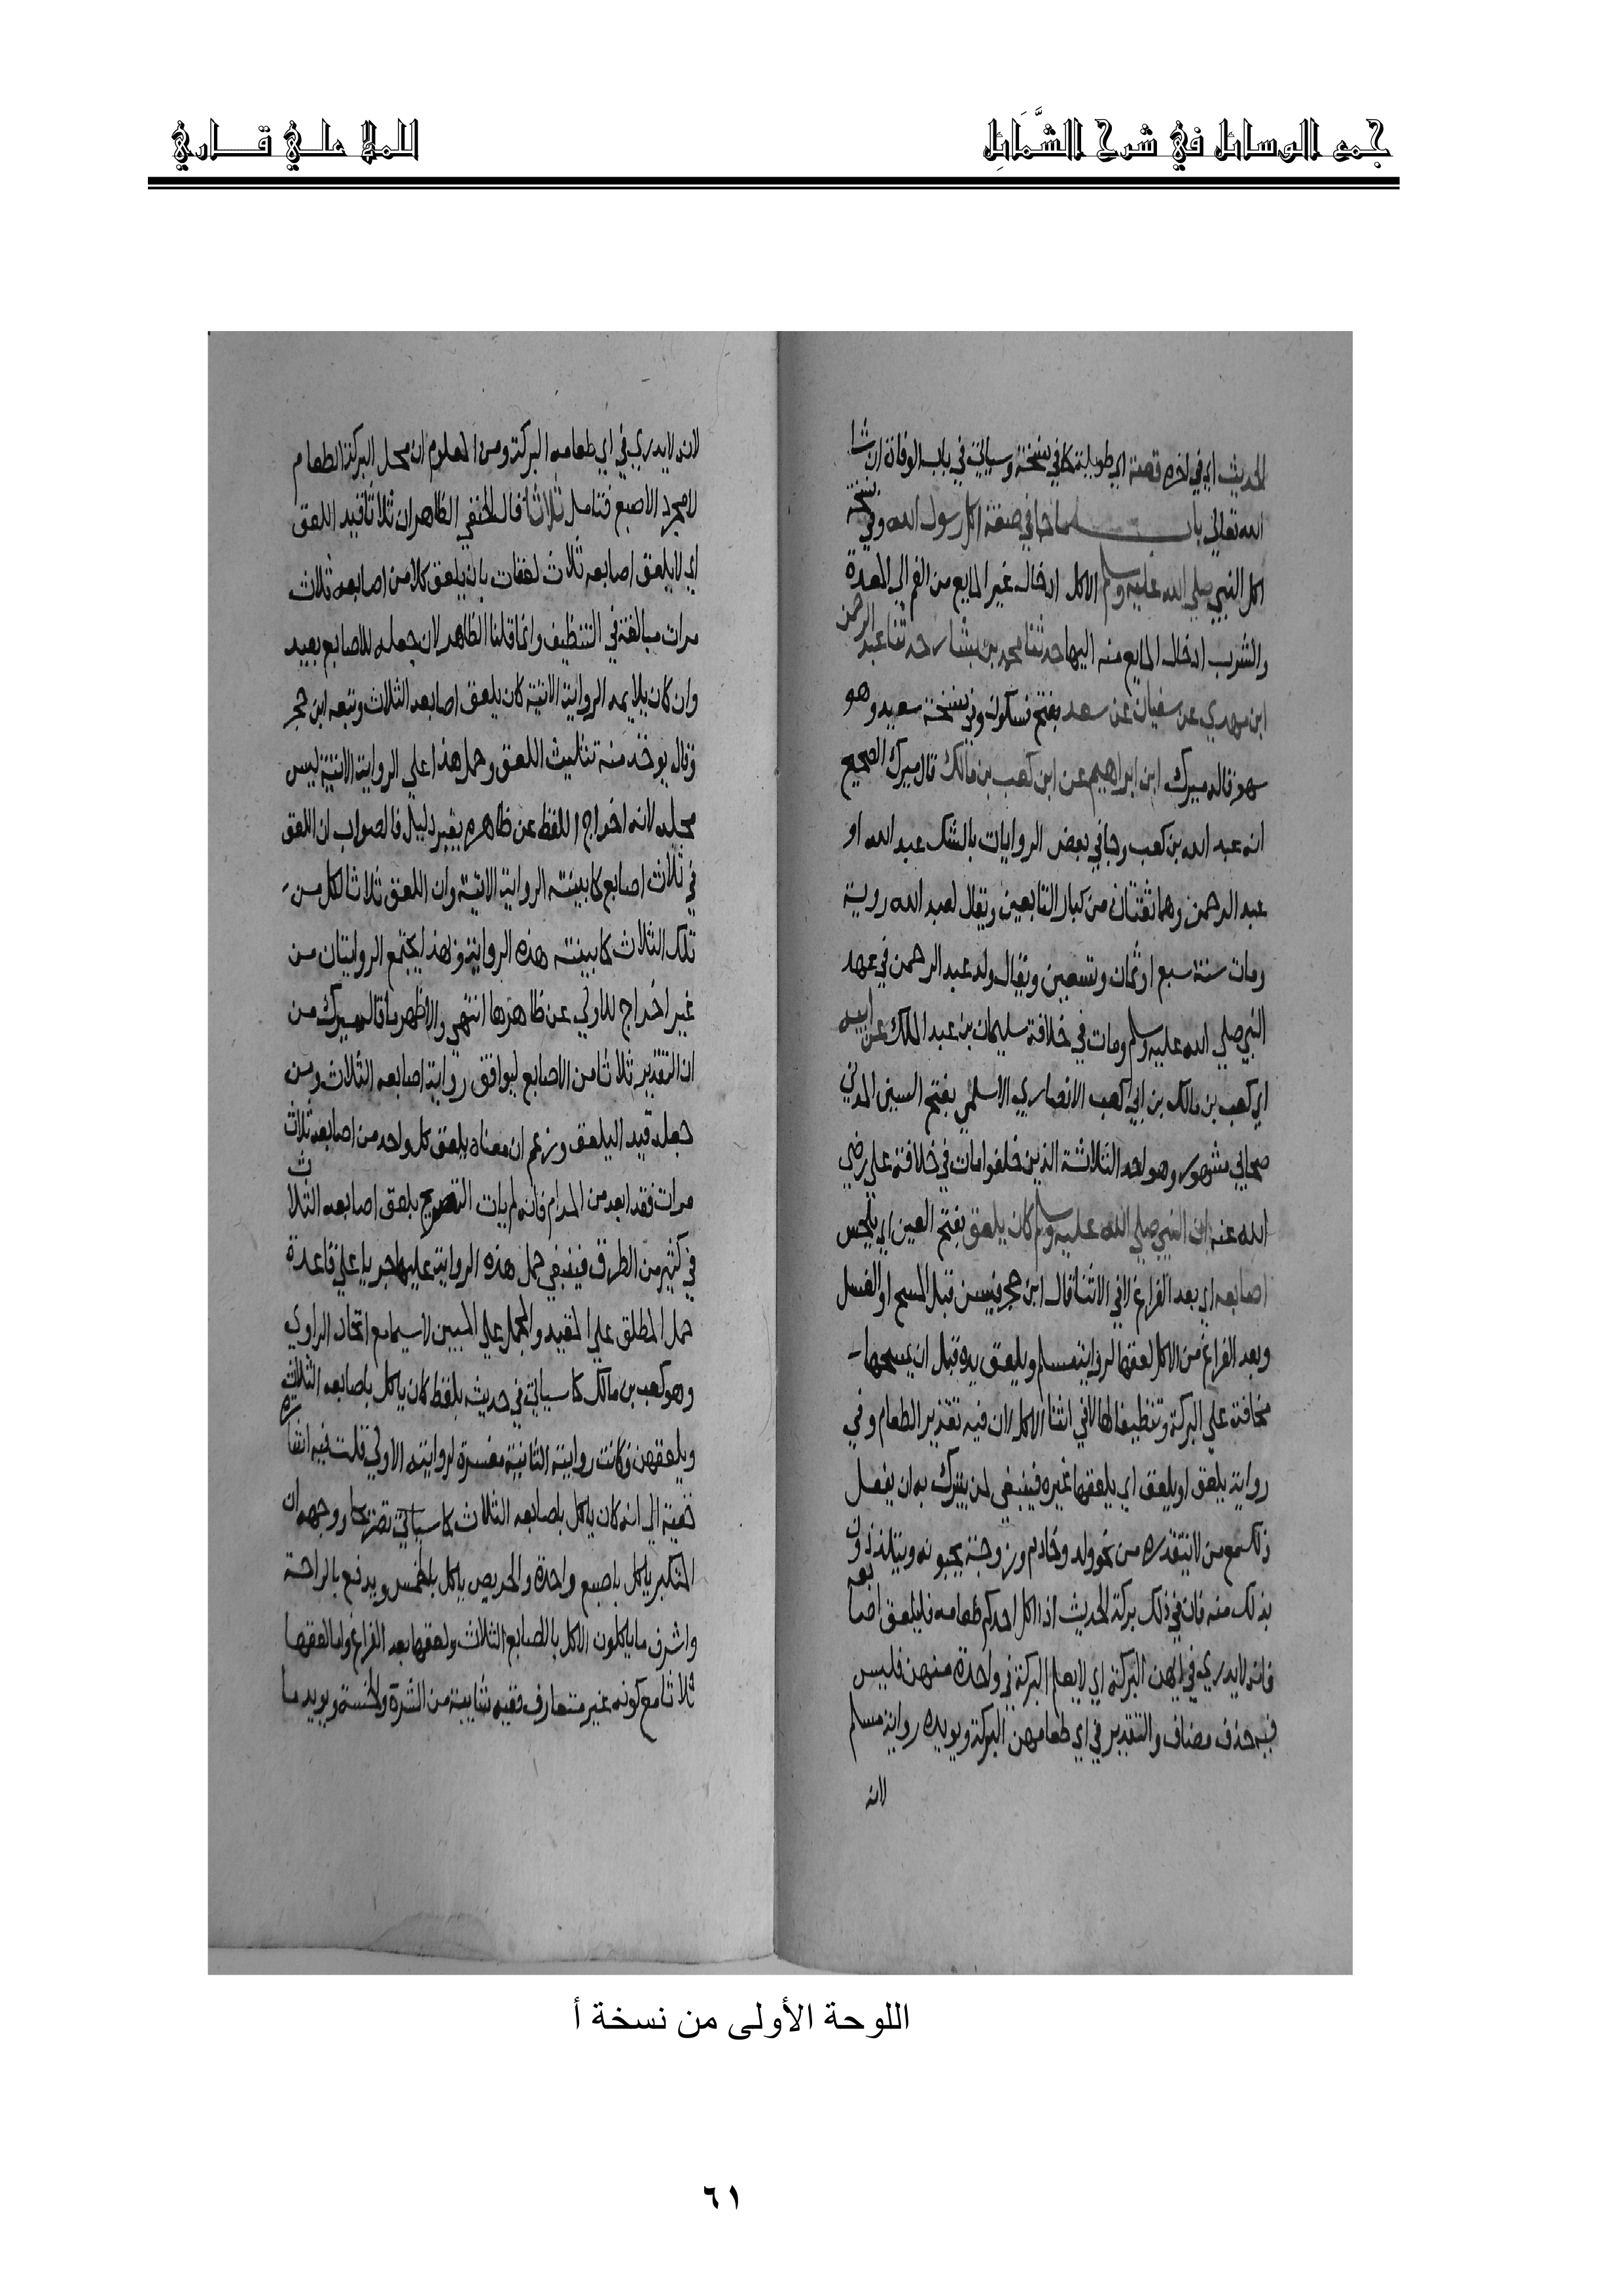 جمع الوسائل في شرح الشَّمَائِل
للملا علي قاري
الحديث اي في اخره قصة اي طويلة كما في نسخة وسياتي في باب الوفاة ان شا
الله تعالى باب ما جا في صفة اكل رسول الله وفي نسخة
اكل النبي صلي الله عليه وسلم الاكل ادخال غير المايع من الفم الي المعدة
والشرب ادخال المايع منه اليها حدثنا محمد بن بشار حدثنا عبد الرحمن
ابن مهدي عن سفيان عن سعد بفتح فسكون وفي نسخة سعيد وهو
سهو قاله ميرك ابن ابراهيم عن ابن كعب بن مالك قال ميرك الصحيح
انه عبد الله بن كعب وجا في بعض الروايات بالشك عبد الله او
عبد الرحمن وهما ثقتان من كبار التابعين ويقال لعبد الله روية
ومات سنة سبع او ثمان وتسعين ويقال ولد عبد الرحمن في عهد
النبي صلي الله عليه وسلم ومات في خلافة سليمان بن عبد الملك عن ابيه
اي كعب بن مالك بن ابي كعب الانصاري الاسلمي بفتح السين المدني
صحابي مشهور وهو احد الثلاثة الذين خلفوا مات في خلافة علي رضي
الله عنه ان النبي صلي الله عليه وسلم كان يلعق بفتح العين اي يلحس
اصابعه اي بعد الفراغ لا في الاثنا قال ابن حجر فيسن قبل المسح او الغسل
وبعد الفراغ من الاكل لعقها لرواية مسلم ويلعق يده قبل ان يمسحها
محافظة علي البركة وتنظيفا لها لا في اثنا الاكل لان فيه تقذير الطعام وفي
رواية يلعق او يلعق اي يلعقها غيره فينبغي لمن يتبرك به ان يفعل
ذلك مع من لا يتقذره من نحو ولد وخادم وزوجة يحبونه ويتلذذون
بذلك منه فان في ذلك بركة لحديث اذا اكل احدكم طعامه فليلعق اصابعه
فانه لا يدري في ايتهن البركة اي لا يعلم البركة في واحدة منهن فليس
فيه حذف مضاف والتقدير في اي طعامهن البركة ويويده رواية مسلم
لانه
لانه لا يدري في اي طعامه البركة ومن المعلوم ان محل البركة الطعام
لا مجرد الاصبع فتامل ثلاثا قال الحنفي الظاهر ان ثلاثا قيد اللعق
اي لا يلعق اصابعه ثلاث لعقات بان يلعق كلا من اصابعه ثلاث
مرات مبالغة في التنظيف وانما قلنا الظاهر لان جعله للاصابع بعيد
وان كان يلايمه الرواية الاتية كان يلعق اصابعه الثلاث وتبعه ابن حجر
وقال يوخذ منه تثليث اللعق وحمل هذا علي الرواية الاتية ليس
محله لانه اخراج اللفظ عن ظاهره بغير دليل فالصواب ان اللعق
في ثلاث اصابع كما بينته الرواية الاتية وان اللعق ثلاثا لكل من
تلك الثلاث كما بينته هذه الرواية وبهذا يجتمع الروايتان من
غير اخراج للاولي عن ظاهرها انتهي والاظهر ما قاله ميرك من
ان التقدير ثلاثا من الاصابع ليوافق رواية اصابعه الثلاث ومن
جعله قيد اليلعق وزعم ان معناه يلعق كل واحد من اصابعه ثلاث
مرات فقد ابعد من المرام فانه لم يات التصريح بلعق اصابعه الثلاث
في كثير من الطرق فينبغي حمل هذه الرواية عليها جريا علي قاعدة
حمل المطلق علي المقيد والمجمل علي المبين لا سيما مع اتحاد الراوي
وهو كعب بن مالك كما سياتي في حديثه بلفظ كان ياكل باصابعه الثلاث
ويلعقهن فكانت روايته الثانية مفسرة لروايته الاولي قلت فيه اشارة
خفية الي انه كان ياكل باصابعه الثلاث كما سياتي تصريحا ووجهه ان
المتكبر ياكل باصبع واحدة والحريص ياكل بالخمس ويدفع بالراحة
واشرف ما ياكلون الاكل بالاصابع الثلاث ولعقها بعد الفراغ واما لعقها
ثلاثا مع كونه غير متعارف ففيه شايبة من الشره والخسة ويويد ما
اللوحة الأولى من نسخة أ
٦١